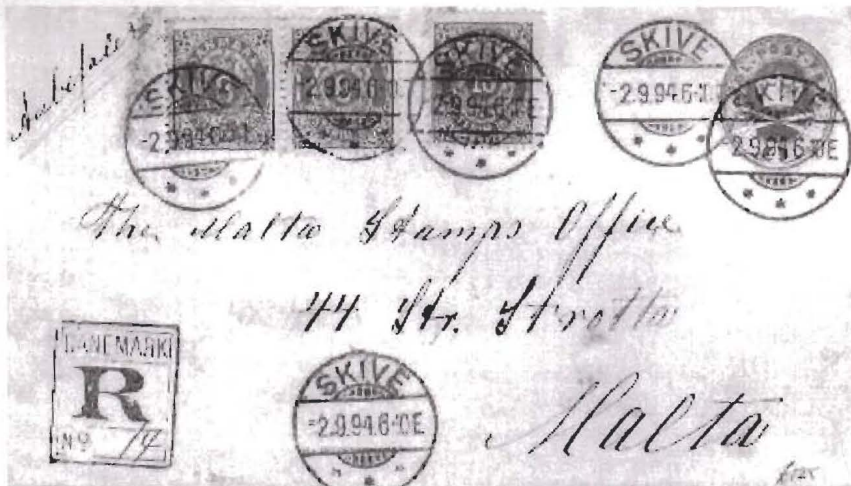 Anbefales
SKIVE
-2.9.94.6-10E
SKIVE
-2.9.94.6-10E
SKIVE
-2.9.94.6-10E
SKIVE
-2.9.94.6-10E
SKIVE
-2.9.94.6-10E
The Malta Stamps Office
44 Str. Stretta
DANEMARK
R
Nº 74
SKIVE
-2.9.94.6-10E
Malta
£125